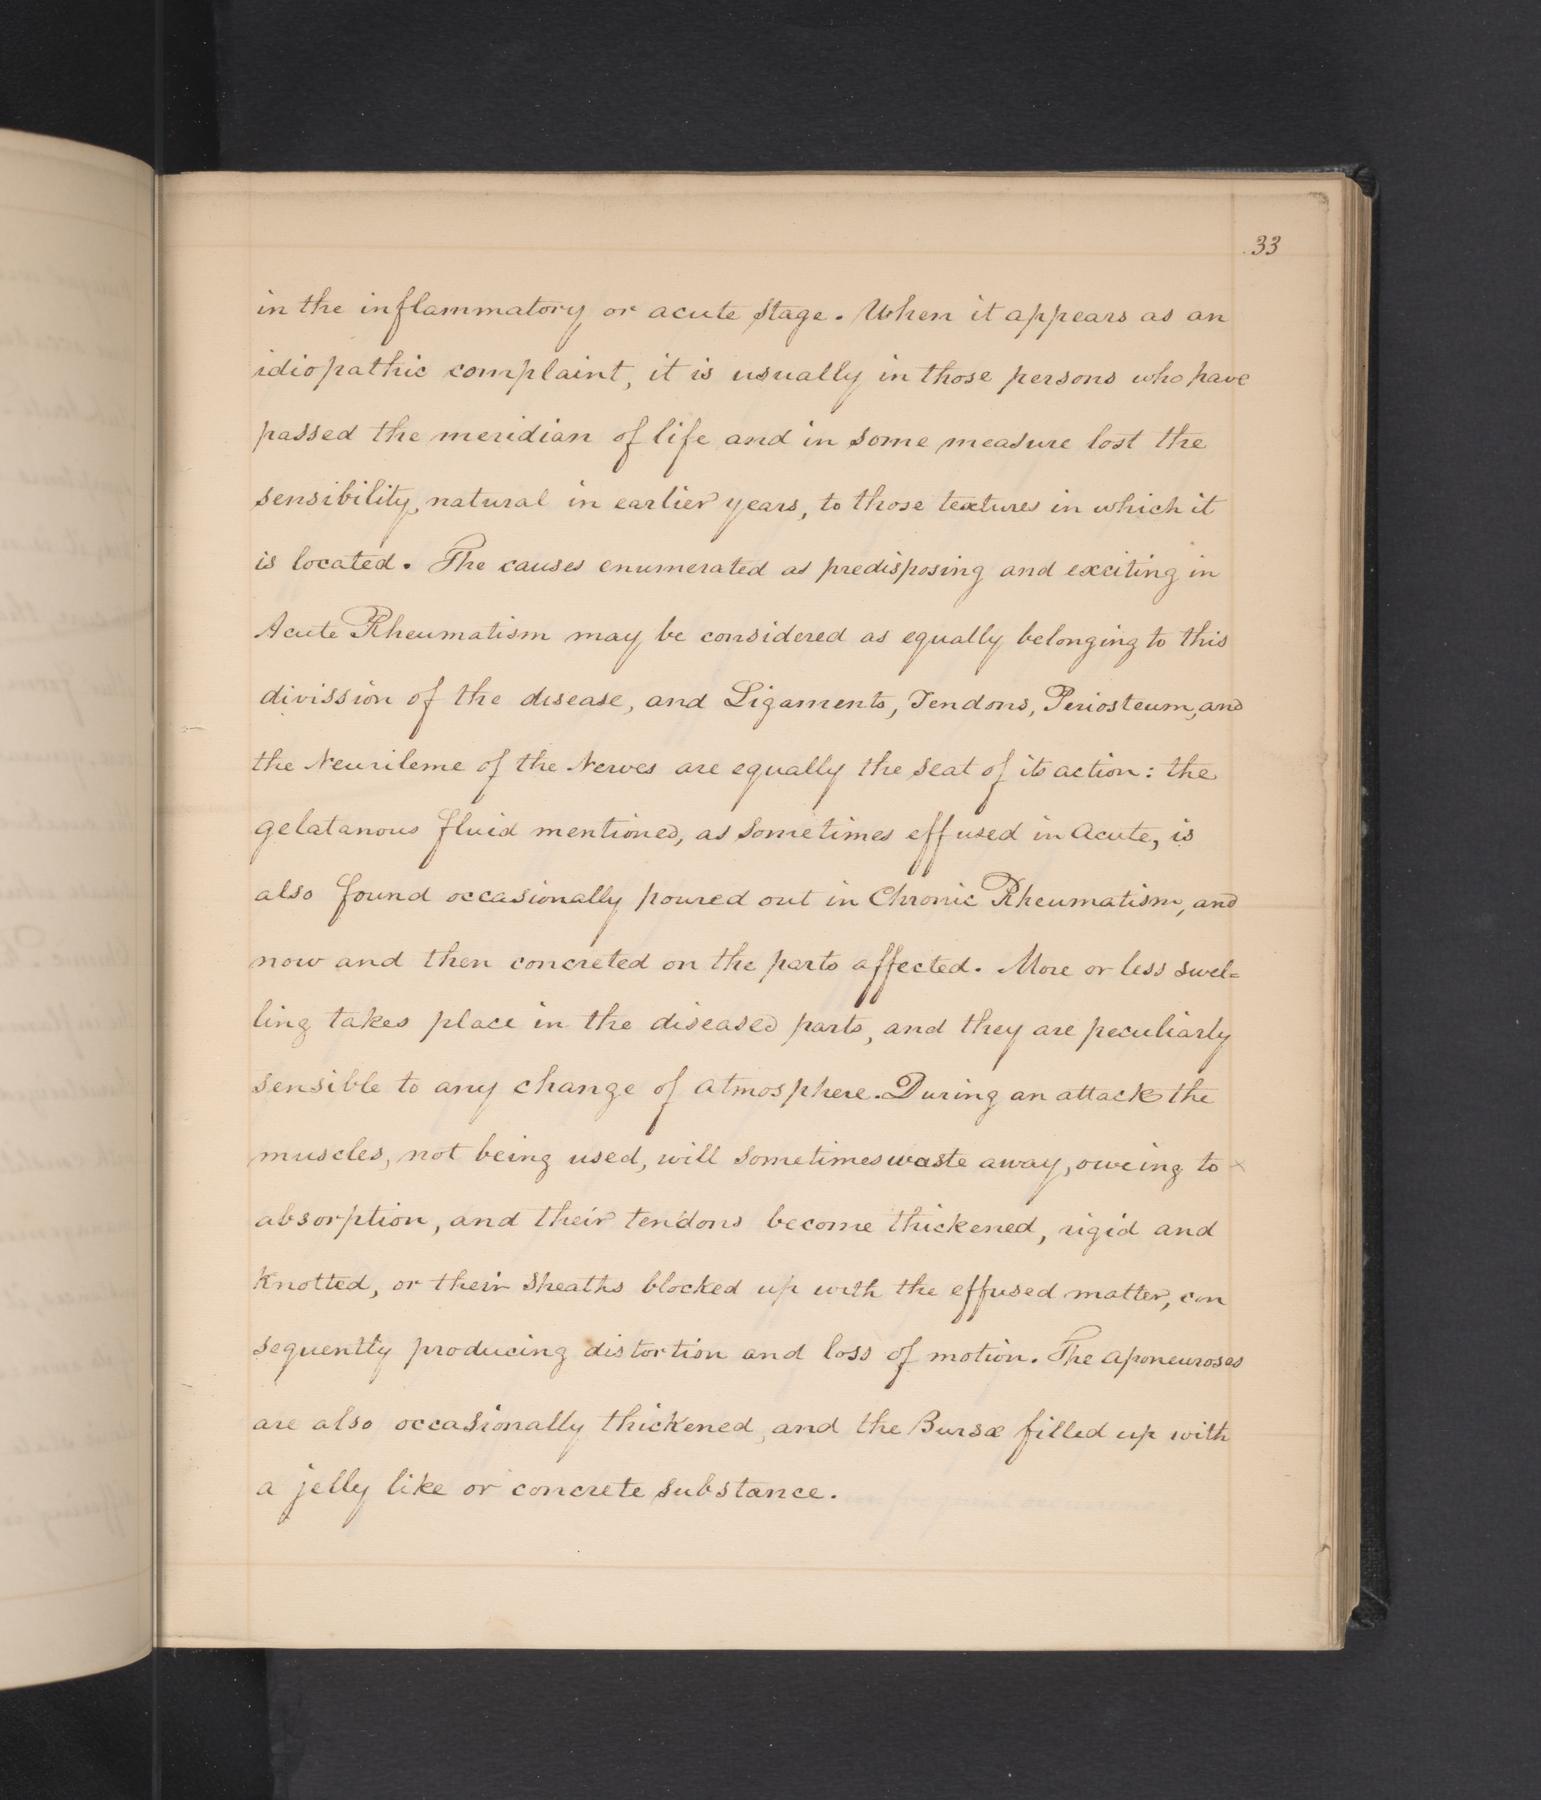 33
in the inflammatory or acute stage. When it appears as an
idiopathic complaint, it is usually in those persons who have
passed the meridian of life and in some measure lost the
sensibility, natural in earlier years, to those textures in which it
is located. The causes enumerated as predisposing and exciting in
Acute Rheumatism may be considered as equally belonging to this
division of the disease, and Ligaments, Tendons, Periosteum, and
the Neurileme of the Nerves are equally the seat of its action: the
gelatanous fluid mentioned, as sometimes effused in Acute, is
also found occasionally poured out in Chronic Rheumatism, and
now and then concreted on the parts affected. More or less swel=
ling takes place in the diseased parts, and they are peculiarly
sensible to any change of atmosphere. During an attack the
muscles, not being used, will sometimes waste away, oweing to
absorption, and their tendons become thickened, rigid and
Knotted, or their Sheaths blocked up with the effused matter, con
sequently producing distortion and loss of motion. The Aponeuroses
are also occasionally thickened, and the Bursæ filled up with
a jelly like or concrete substance.